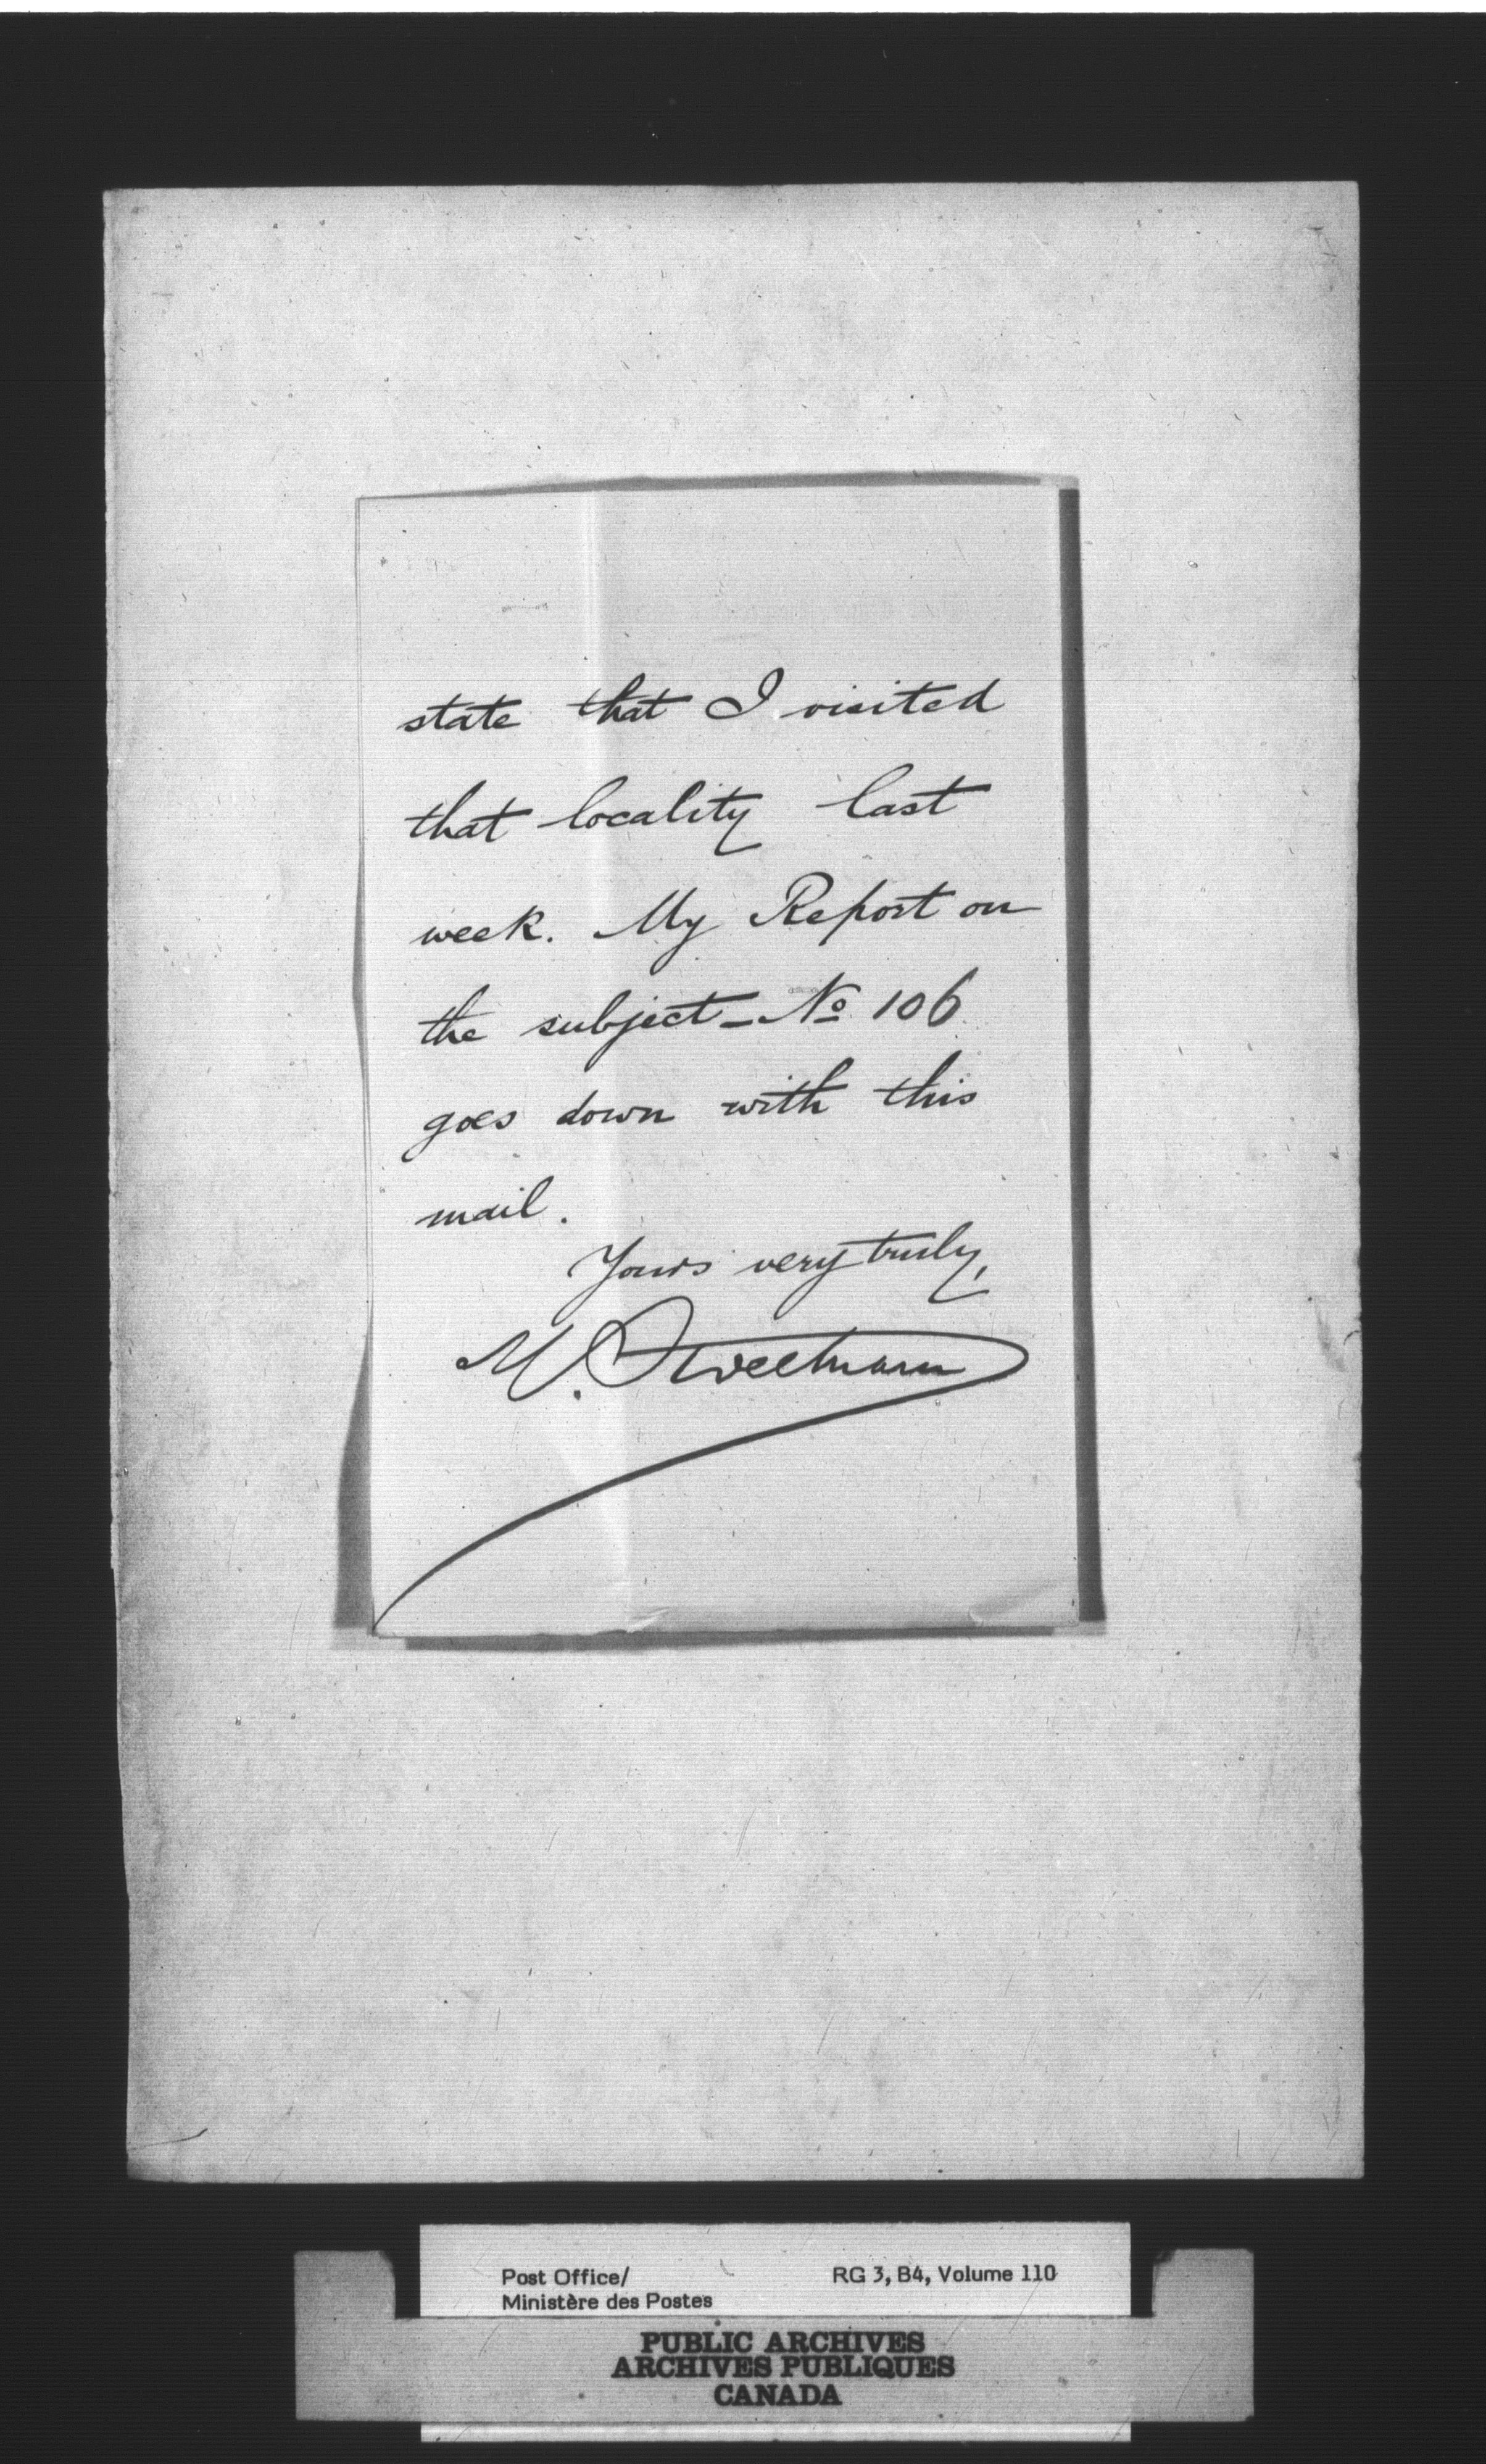 state that I visited
that locality last
week. My Report on
the subject - No 106
goes down with this
mail.
Yours very truly,
M. Sweetnam
Post Office/
Ministère des Postes
RG 3, B4, Volume 110
PUBLIC ARCHIVES
ARCHIVES PUBLIQUES
CANADA